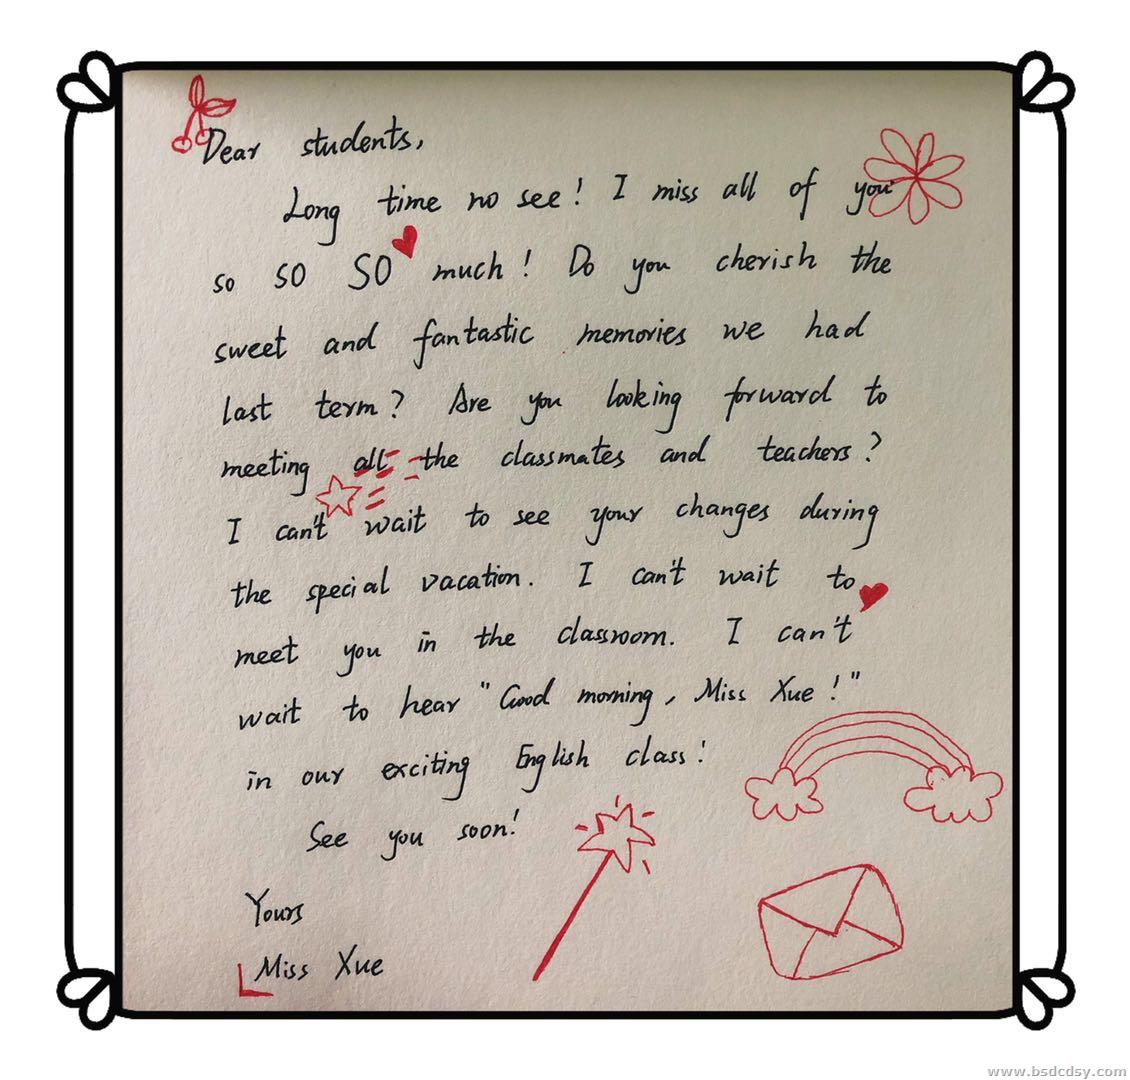 Dear students,
Long time no see! I miss all of you
so so SO much! Do you cherish the
sweet and fantastic memories we had
last term? Are you looking forward to
meeting all the classmates and teachers?
I can't wait to see your changes during
the special vacation. I can't wait to
meet you in the classroom. I can't
wait to hear "Good morning, Miss Xue!"
in our exciting English class!
See you soon!
Yours
Miss Xue
www.bsdcdsy.com